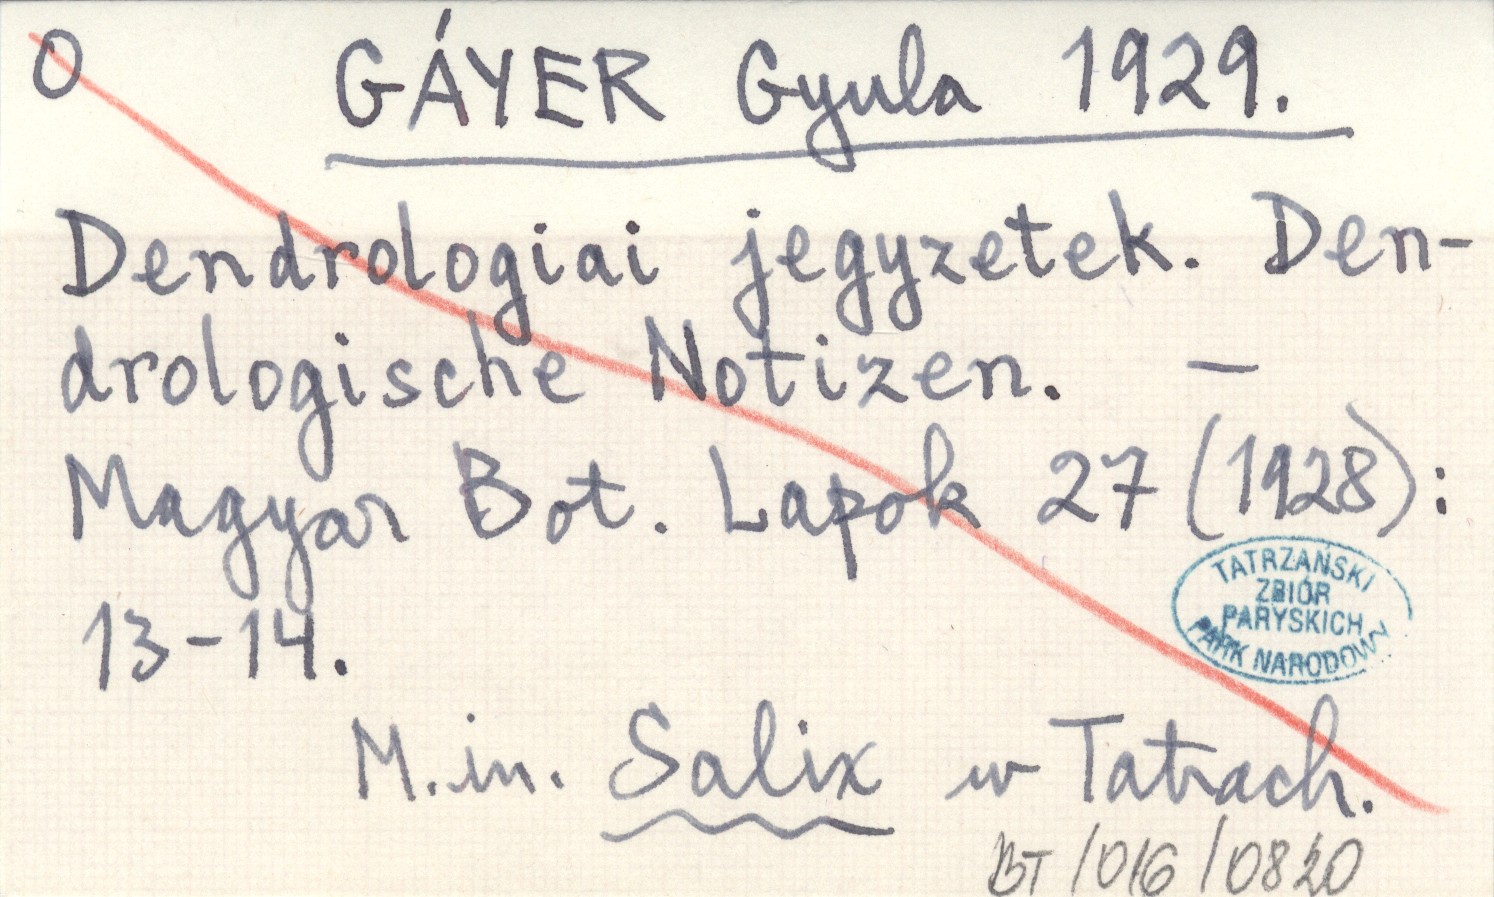 O GÁYER Gyula 1929.
Dendrologiai jegyzetek. Den-
drologische Notizen. —
Magyar Bot. Lapok 27 (1928):
13-14.
TATRZAŃSKI
ZBIÓR
PARYSKICH
PARK NARODOWY
M.in. Salix w Tatrach.
BT/016/0820